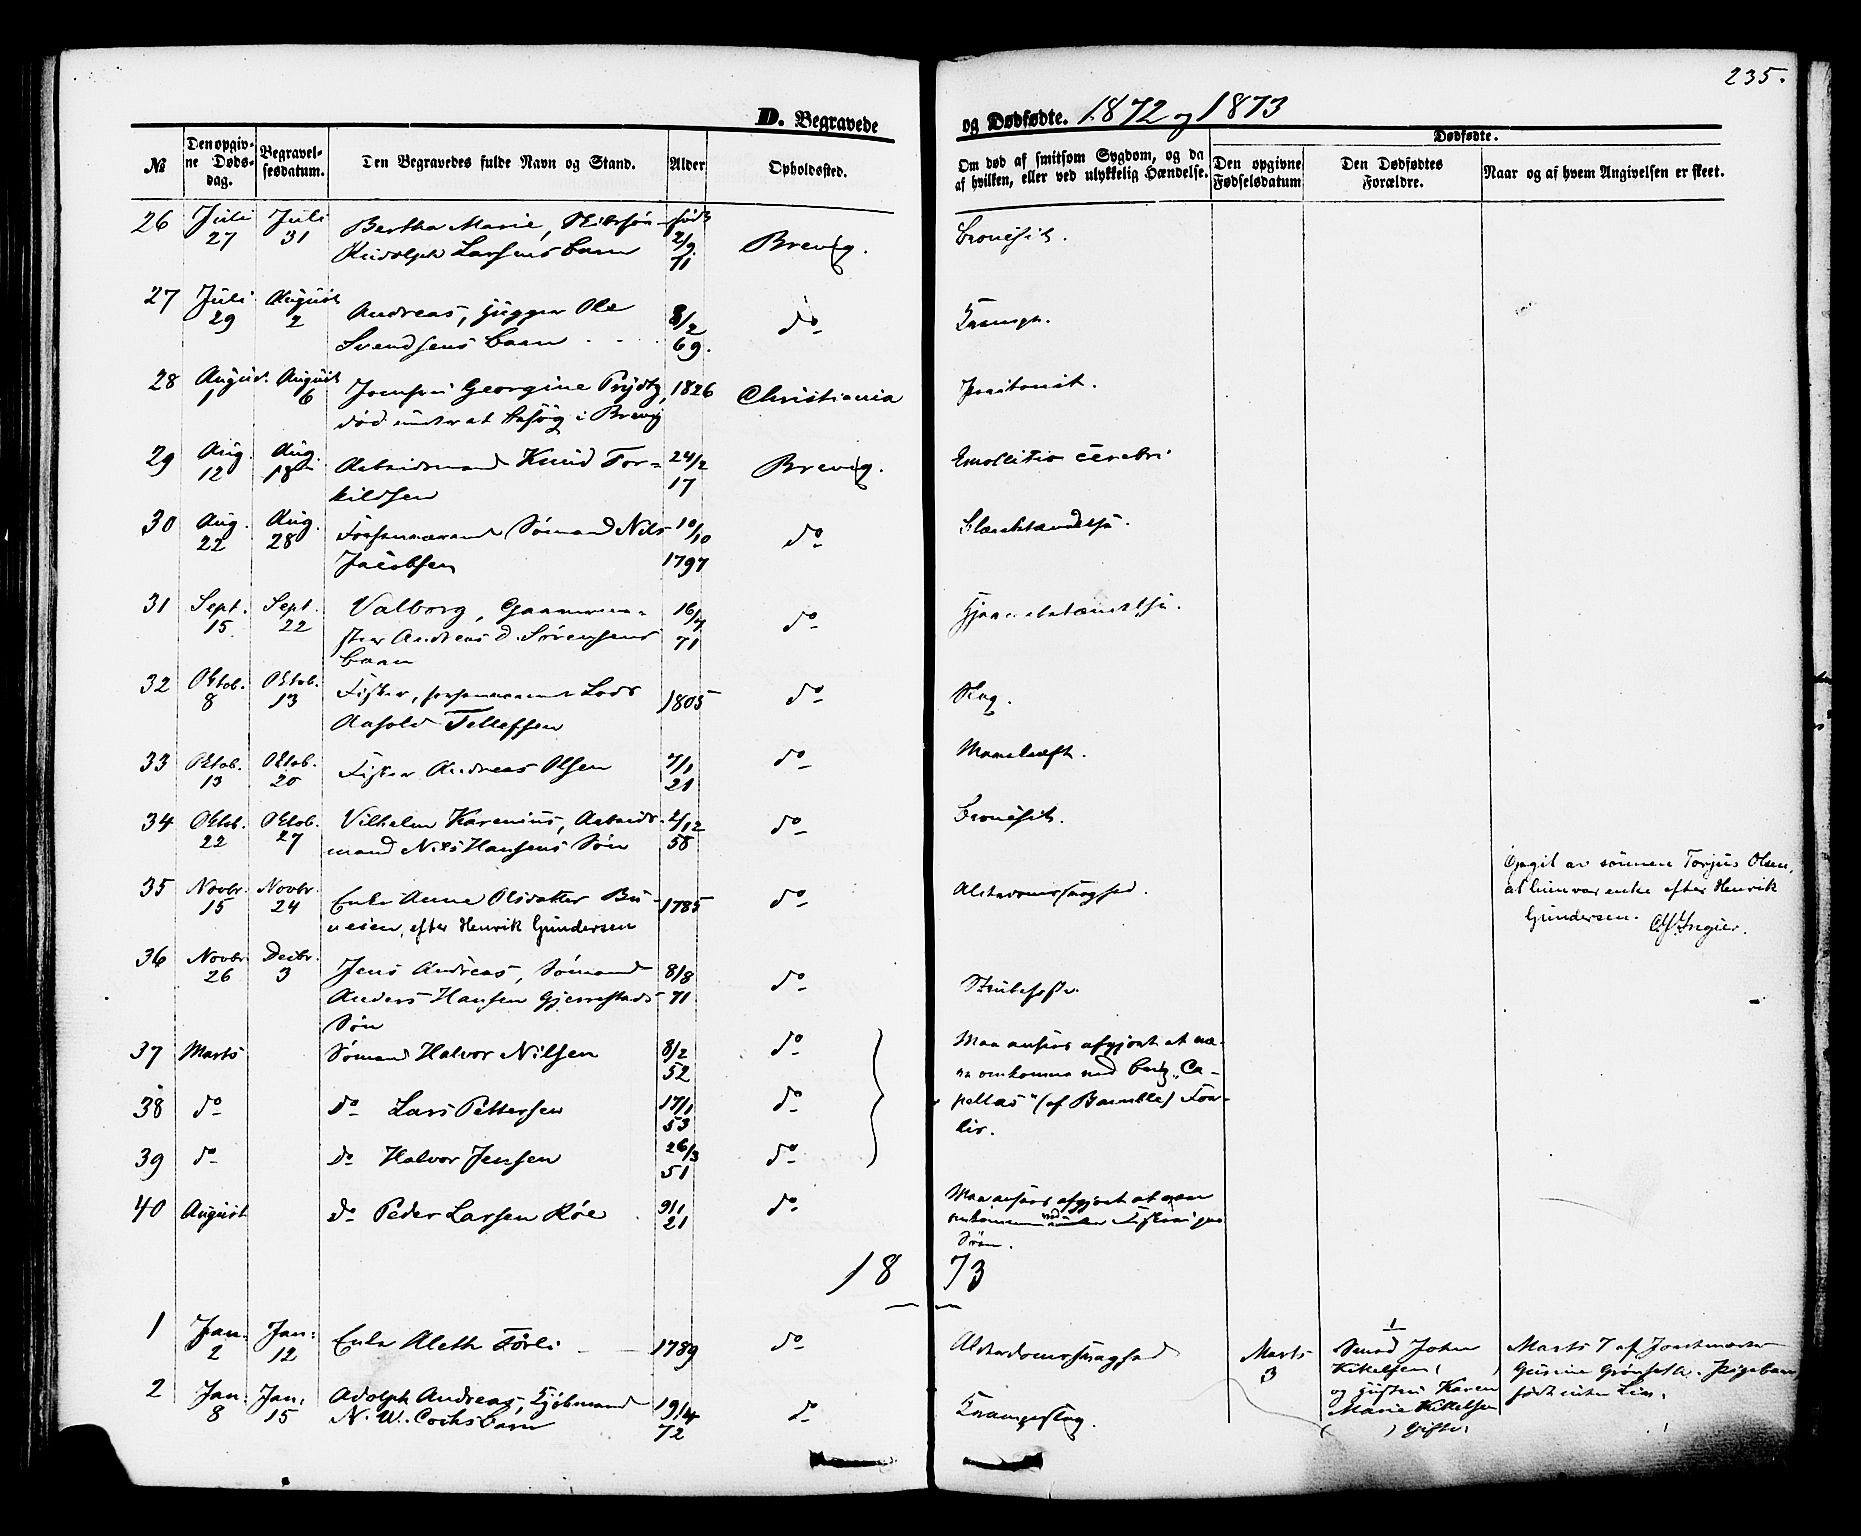 235.
D. Begravede og Dødfødte. 1872 og 1873
№
Den opgivne Dødsdag.
Begravelsesdatum.
Den Begravedes fulde Navn og Stand.
Alder
Opholdssted.
Om død af smitsom Sygdom, og da af hvilken, eller ved ulykkelig Hændelse.
Dødfødte.
Den opgivne Fødselsdatum
Den Dødfødtes Forældre.
Naar og af hvem Angivelsen er skeet.
26 Juli 27 Juli 31 Bertha Marie, født 2/9 71 Brevig.
Rudolph Larsens Barn
27 Juli 29 August 2 Andreas, Ole 8/2 69. do Krampe.
Svendsens Barn
28 August 1 August 6 Georgine Prydtz, 1826 Christiania
død under et Besøg i Brevig
29 Aug. 12 Aug. 18 Arbeidsmand Knud Tor- 24/2 17 Brevig. Emollitio cerebri
kildsen
30 Aug. 22 Aug. 28 Forhenværende Sømand Nils 10/10 1797 do
Jacobsen
31 Sept. 15 Sept. 22 Valborg, 16/7 71 do
Andreas D. Sørensens
Barn
32 Oktob. 8 Oktob. 13 Fisker, forhenværende Lods 1805 do Slag.
Aasold Tellefsen
33 Oktob. 13 Oktob. 20 Fisker Andreas Olsen 7/1 21 do Mavekræft.
34 Oktob. 22 Oktob. 27 Vilhelm Karenius, Arbeids- 2/12 58 do
mand Nils Hansens Søn
35 Novbr. 15 Novbr. 24 Enke Anne Olsdatter Bu- 1785 do Alderdomssvaghed.
neien, efter Henrik Gundersen
Opgit av sønnen Torjus Olsen,
at hun var enke efter Henrik
Gundersen.
36 Novbr 26 Decbr. 3 Jens Andreas, Sømand 8/8 71 do Strubehoste
Anders Hansen Gjerrestads
Søn
37 Marts Sømand Halvor Nilsen 8/2 52 do Maa ansees afgjort at væ-
re omkomne med Brig "Ca-
38 do do Lars Pettersen 17/1 53 do pellas" (af Bamble) For-
lis.
39 do do Halvor Jensen 26/3 51 do
40 August do Peder Larsen Røe 9/1 21 do Maa ansees afgjort at være
omkommen ved Fiskeri paa
Søen.
1873
1 Jan: 2 Jan: 12 Enke Aleth Førli 1789 do Alderdomssvaghed
2 Jan: 8 Jan: 15 Adolph Andreas, Kjøbmand 19/4 72 do Krampeslag.
N. W. Cochs Barn
Marts 3
1
Smed John
Kittelsen
og Hustru Karen
Marie Kittelsen
( ) Gifte.
Marts 7 af Jordmoder
Gurine Grønseth. Pigebarn
født uden Liv.